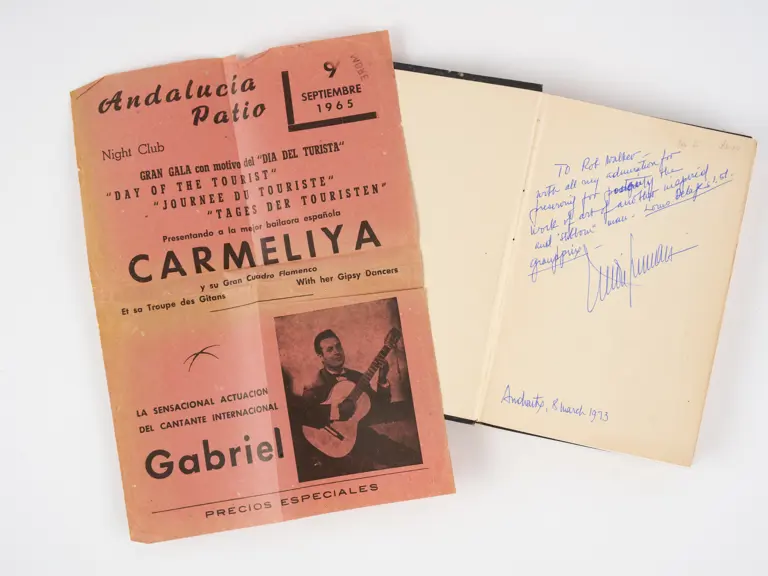 Andalucía
Patio
9
SEPTIEMBRE
1965
Night Club
GRAN GALA con motivo del "DIA DEL TURISTA"
"DAY OF THE TOURIST"
"JOURNEE DU TOURISTE"
"TAGES DER TOURISTEN"
Presentando a la mejor bailaora española
CARMELIYA
y su Gran Cuadro Flamenco
Et sa Troupe des Gitans
With her Gipsy Dancers
LA SENSACIONAL ACTUACION
DEL CANTANTE INTERNACIONAL
Gabriel
PRECIOS ESPECIALES
To Rob Walker —
with all my admiration for
preserving for posterity the
work of art of another inspired
and "stubborn" man
grand prix! —
Andraitx, 8 march 1973